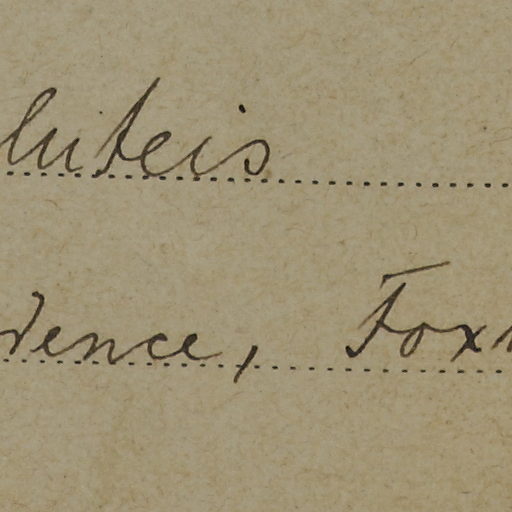 luteis
dence, Fox